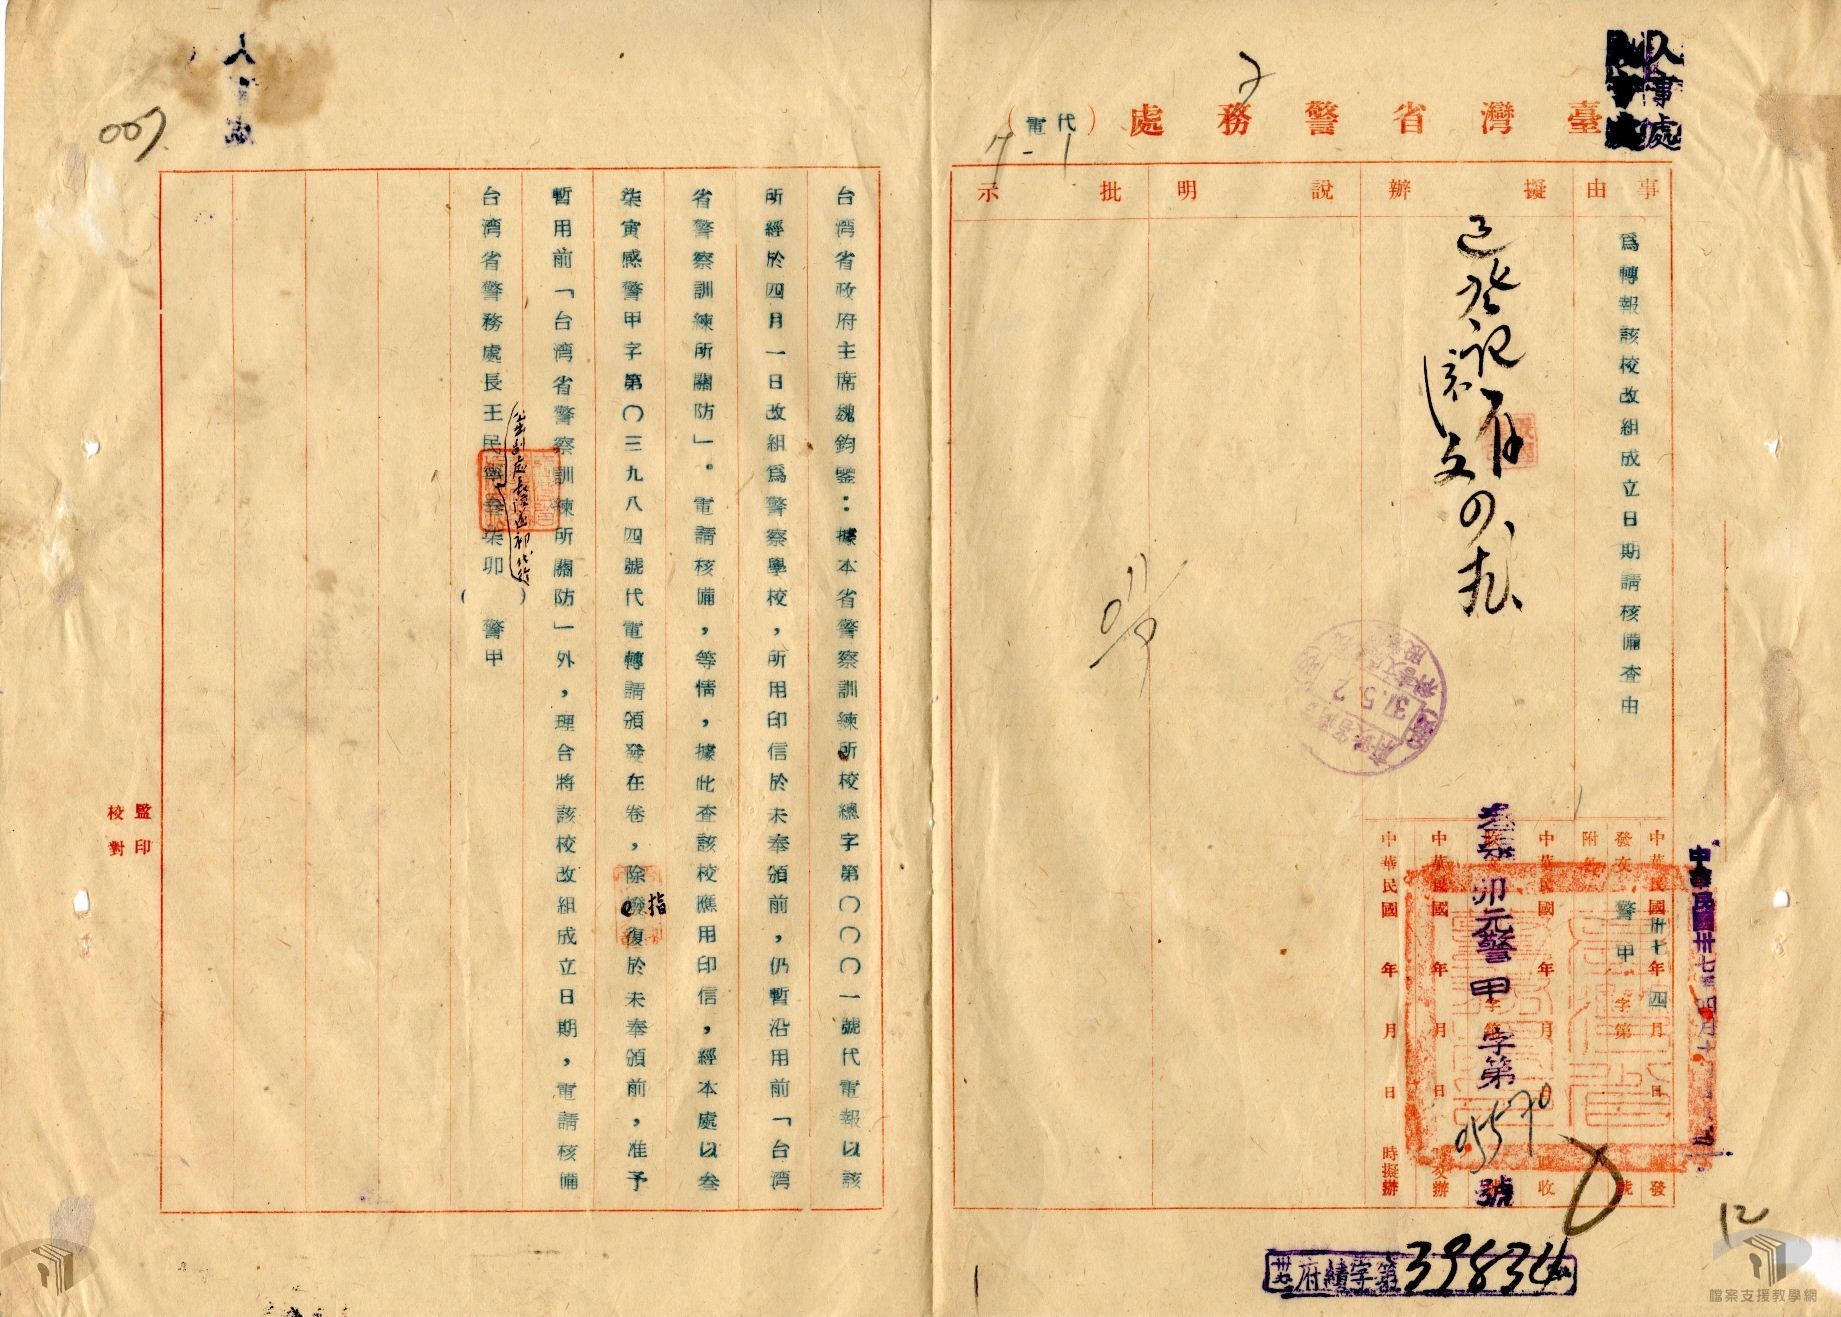 臺灣省警務處（代電）
人事處
事由
擬辦
說明
批示
為轉報該校改組成立日期請核備查由
已登記
文
中華民國卅七年四月
發文警甲字第
附件
中華民國年月日
中華民國年月日
中華民國年月日時擬辦
卯元警甲字第05570號
中華民國卅七年四月十
37.5.2
府績字第39834
12
台湾省政府主席魏鈞鑒：據本省警察訓練所校總字第〇〇〇一號代電報以該
所經於四月一日改組為警察學校，所用印信於未奉頒前，仍暫沿用前「台湾
省警察訓練所關防」。電請核備，等情，據此查該校應用印信，經本處以叁
柒寅感警甲字第〇三九八四號代電轉請頒發在卷，除指復於未奉頒前，准予
暫用前「台湾省警察訓練所關防」外，理合將該校改組成立日期，電請核備
台湾省警務處長王民寧叁柒卯（　）警甲
監印
校對
007
檔案支援教學網